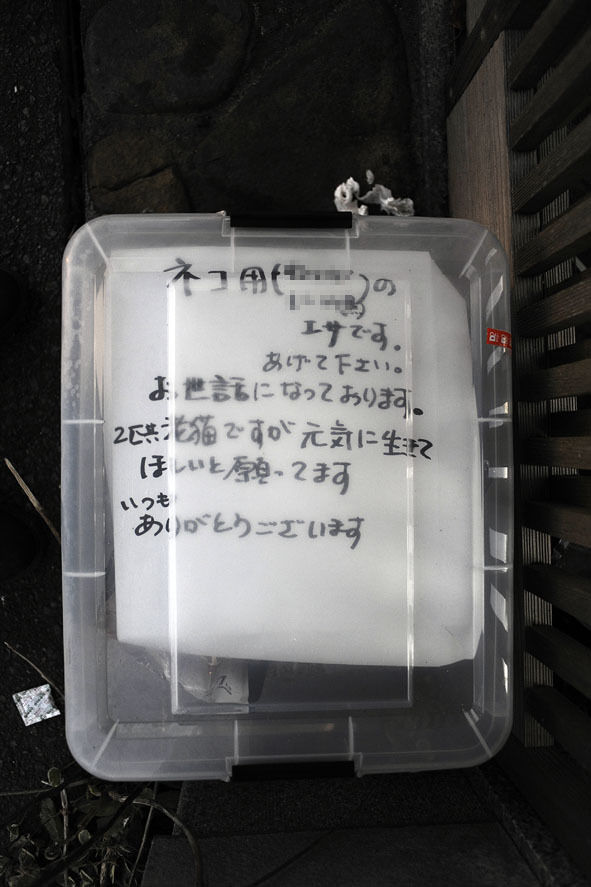 ネコ用( )の
エサです。
あげて下さい。
お世話になっております。
2匹共花猫ですが元気に生きて
ほしいと願ってます
いつも
ありがとうございます